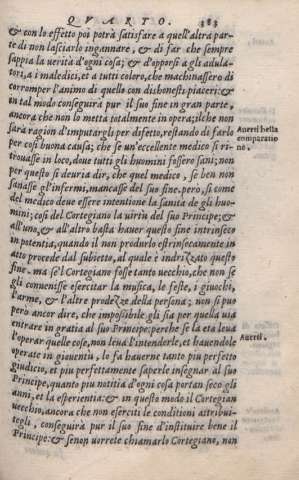 QVARTO. 383
& con lo effetto poi potrà satisfare a quell'altra par-
te di non lasciarlo ingannare, & di far che sempre
sappia la verità d'ogni cosa; & d'opporsi a gli adula-
tori, a i maledici, et a tutti coloro, che machinassero di
corromper l'animo di quello con dishonesti piaceri: &
in tal modo conseguirà pur il suo fine in gran parte,
ancora che non lo metta totalmente in opera; ilche non
sarà ragion d'imputargli per difetto, restando di farlo
per così buona causa; che se un'eccellente medico si ri-
trouasse in loco, doue tutti gli huomini fossero sani; non
per questo si deuria dir, che quel medico, se ben non
sanasse gl'infermi, mancasse del suo fine. però, si come
del medico deue essere intentione la sanità de gli huo-
mini; così del Cortegiano la virtù del suo Principe; &
all'uno, & all'altro basta hauer questo fine intrinseco
in potentia, quando il non produrlo estrinsecamente in
atto procede dal subietto, al quale è indrizzato questo
fine. ma se'l Cortegiano fosse tanto vecchio, che non se
gli conuenisse esercitar la musica, le feste, i giuochi,
l'arme, & l'altre prodezze della persona; non si può
però ancor dire, che impossibile gli sia per quella uia
entrare in gratia al suo Principe: perche se la età leua
l'operar quelle cose, non leua l'intenderle, et hauendole
operate in giouentù, lo fa hauerne tanto piu perfetto
giudicio, et piu perfettamente saperle insegnar al suo
Principe, quanto piu notitia d'ogni cosa portan seco gli
anni, et la esperientia: & in questo modo il Cortegian
vecchio, ancora che non eserciti le conditioni attribui-
tegli, conseguirà pur il suo fine d'instituire bene il
Principe: & se non uorrete chiamarlo Cortegiano, non
Auerti bella
comparatio
ne.
Auerti.